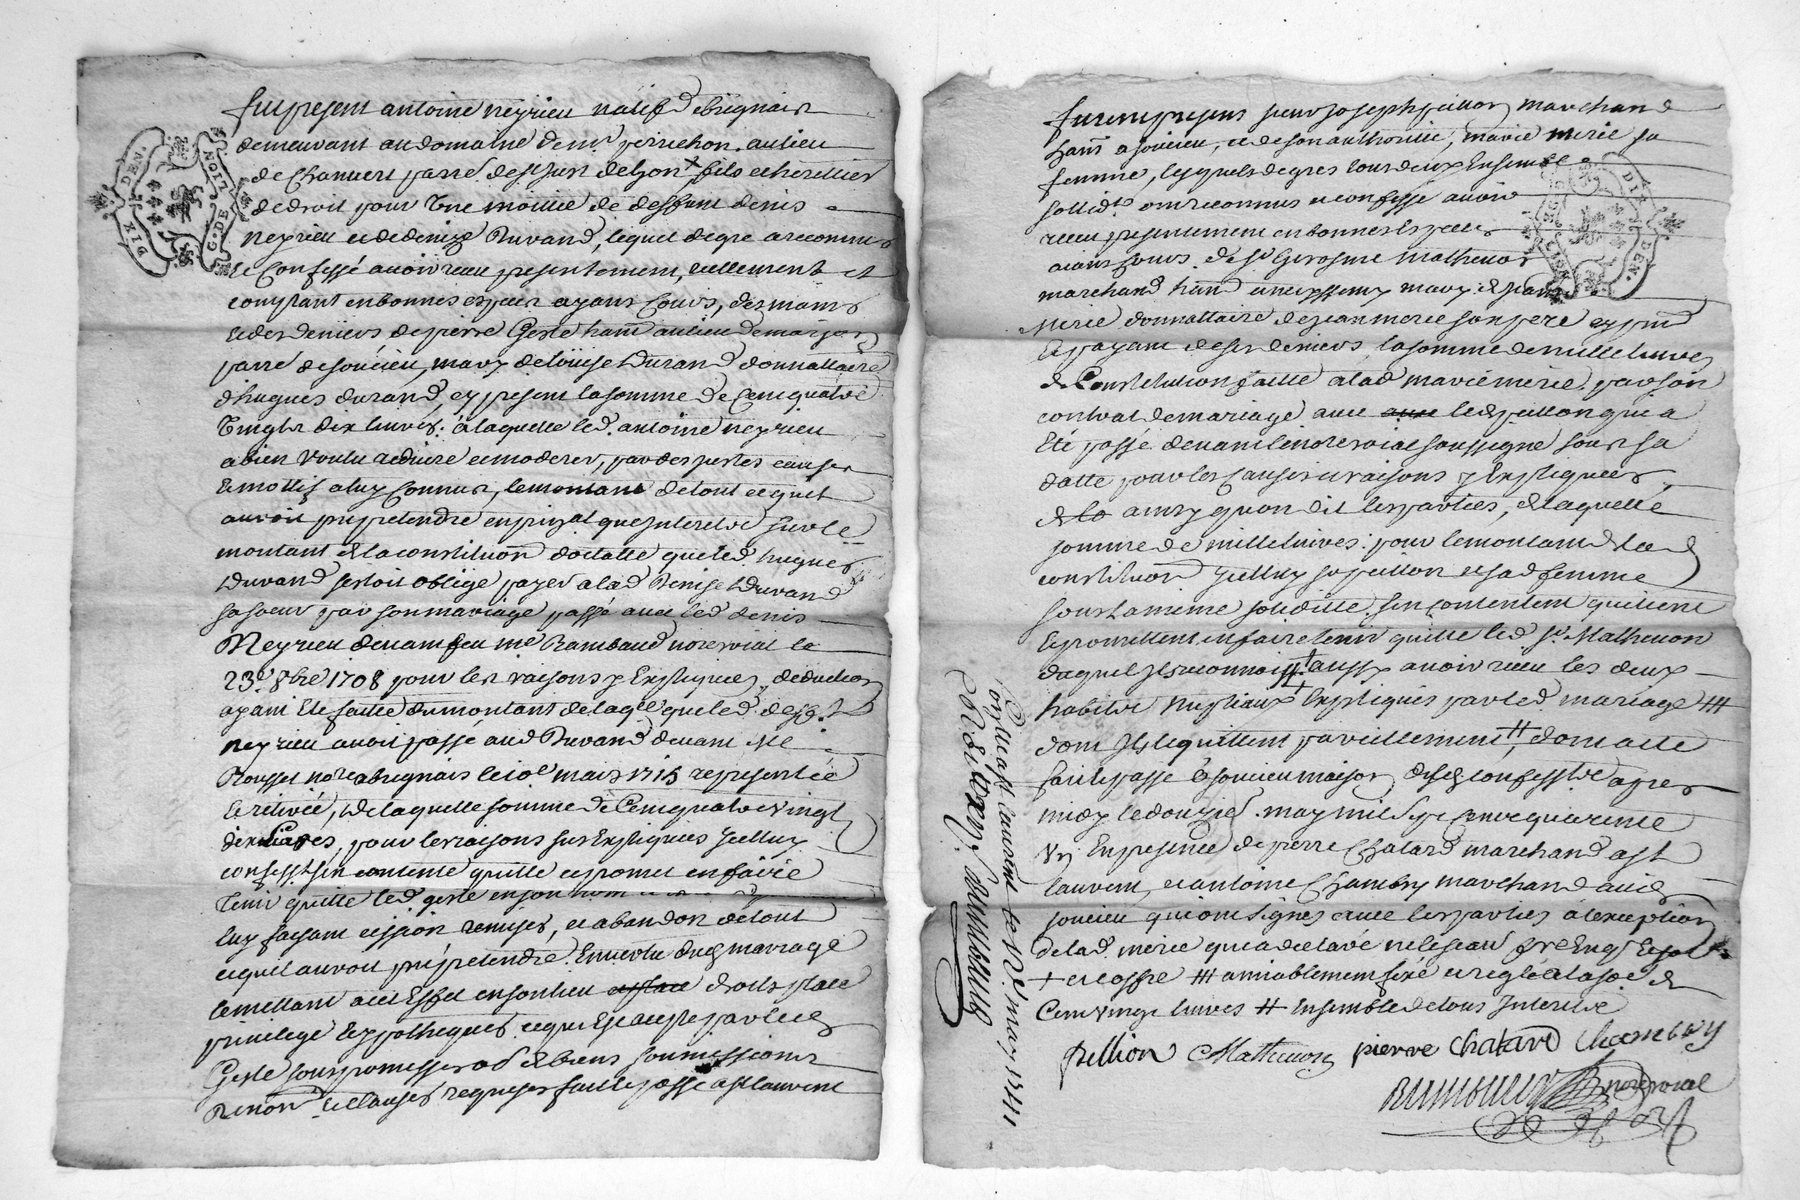 DIX DEN.
G. DE LION
fut present antoine neyrieu natif d brignais
demeurant au domaine de mr perrichon au lieu
de Chanuert parr. de st Just de lyon + fils et heritier
de droit pour Vne moitié de deffunt denis
neyrieu et de denize Durand, lequel de gre a reconnu
et Confessé auoir receu presentement, reellement et
comptant en bonnes especes ayans Cours, des mains
et des deniers de pierre Geste hant au lieu de
parr. de soucieu, mary de loüise Durand donnattaire
d'hugues durand, cy present la somme de Cent quatre
Vingts dix liures. a laquelle led. antoine neyrieu
a bien Voulu reduire et moderer, par des justes causes
et motifs a luy Connus, le montant de tout ce quil
auroit peu pretendre en principal que interets sur le
montant de la constitution dotalle que led. hugues
Durand sestoit oblige payer a lad. Denise Durand
sa soeur par son mariage passé auec led. denis
Neyrieu deuant feu me Rambaud nore roial le
23e 8bre 1708 pour les raisons y Expliquées, deduction
ayant Eté faitte du montant de laqe que led. denis
neyrieu auoit passé aud. Durand deuant Me
Rousset nore a brignais le 10e mars 1715 representée
et retirée, de laquelle somme de Cent quatre Vingt
dix liures, pour les raisons sus Expliquées Jcelluy
confesst sen contente quitte et promet en faire
tenir quitte led. geste en son nom
luy faisant cession remises, et abandon de tout
ce quil auroit peu pretendre En vertu dud. mariage
le mettant a cet Effet en son lieu droits place
priuilege et hypotheques ce que Est accepte par led.
Geste sous promesses obl. de biens soumissions
Renon. et clauses requises fait et passé a st laurent
furent presens sieur Joseph pillion marchand
hant a soucieu, et de son authorité, marie merie sa
femme, lesquels de gres tous deux Ensemble
sollidt. ont reconnus et confessé auoir
receu presentement en bonnes Especes
aians Cours de sr Gerosme matheuon
marchand hant mary de
merie donnattaire de Jean merie son pere cy pnt
et payant de ses deniers la somme de mille liures
de Constitution faitte a lad. marie merie par son
contrat de mariage auec led. pillion qui a
Eté passé deuant le nore roial soussigné sous sa
datte pour les Causes et raisons y Expliquées
ainsy quon dit les parties, de laquelle
somme de mille liures pour le montant de lad.
constitution Jcelluy sr pillion et sad. femme
sous la meme solidité sen contentent quittent
et promettent en faire tenir quitte led. sr. Matheuon
duquel Jls reconnoiss. aussy auoir receu les deux
habits nuptiaux Expliqués par led. mariage ###
dont Jls le quittent pareillement #, dont acte
fait et passé a soucieu maison desd. confesst. apres
midy le douze may mil sept Cent quarente
vn En presence de pierre Chatard marchand a st
laurent, et antoine Chambry marchand aud.
soucieu qui ont signés auec les parties a lexception
de lad. merie qui a declaré ne le scauoir
+ et coffre ### amiablement fixé et reglé a la somme de
Cent vingt liures # Ensemble de tous Interets
pillion Matheuon pierre chatard Chambry
nore roial
Conllé a st laurent le 12 may 1741